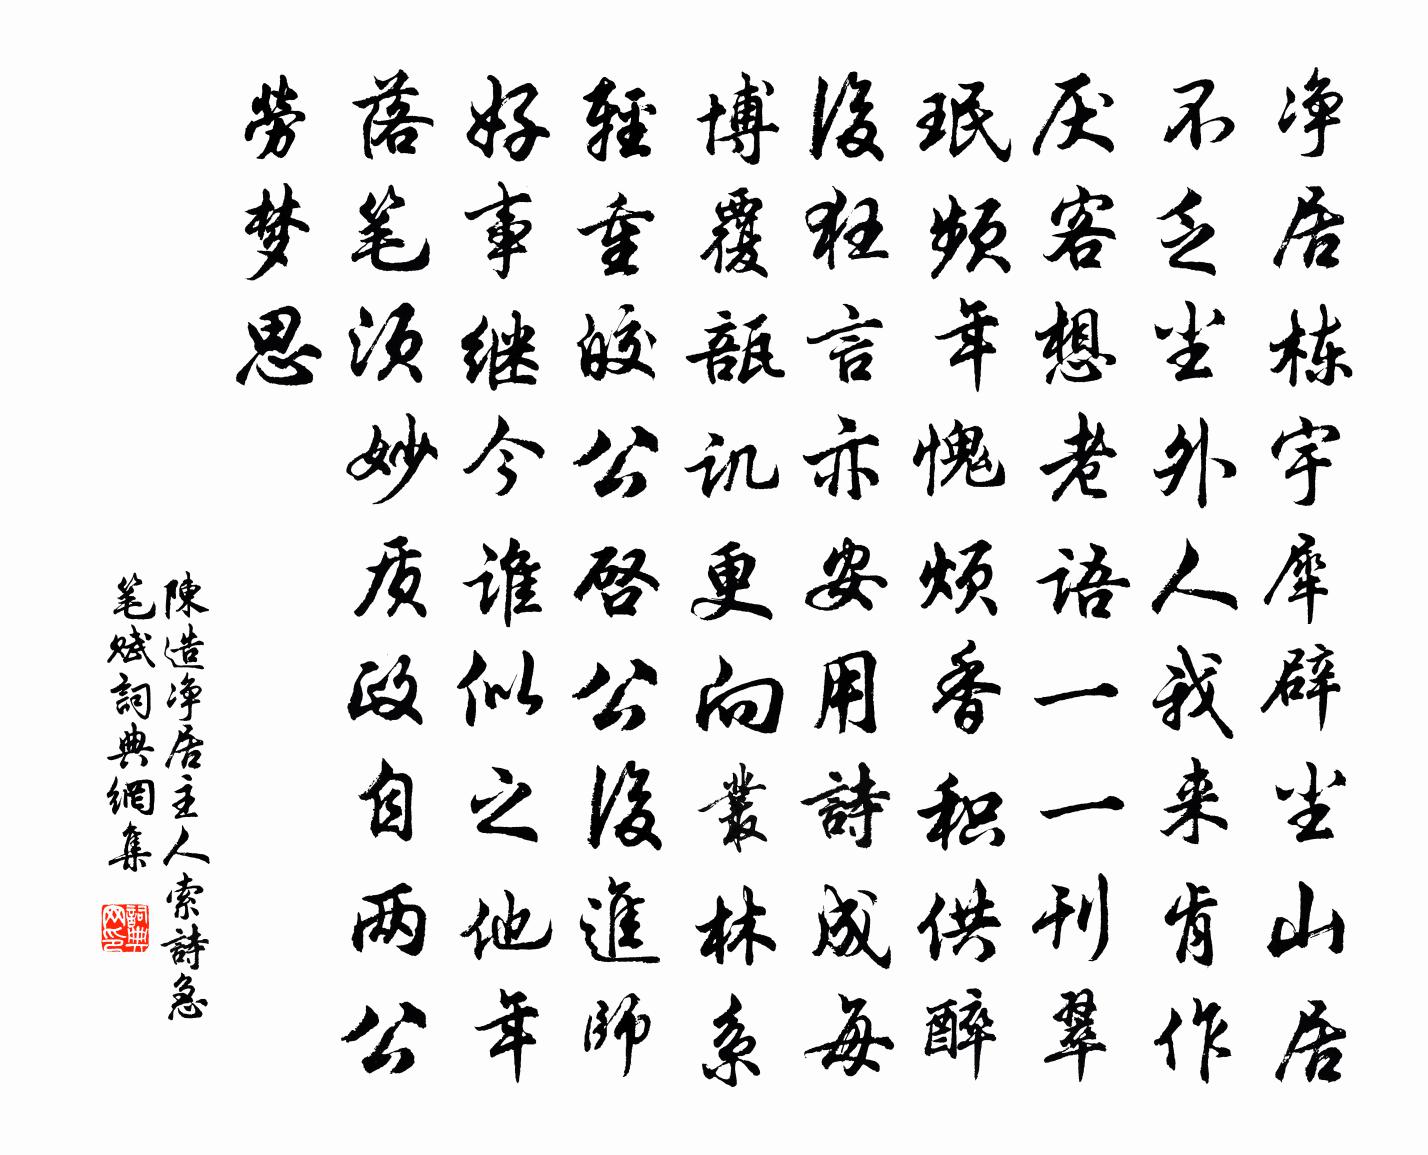 净居栋宇犀辟尘山居
不乏尘外人我来肯作
厌客想老语一一刊翠
珉频年愧烦香积供醉
後狂言亦安用詩成每
博覆瓿讥更向叢林系
輕重皎公公後進師
好事继今谁似之他年
落笔须妙质政自两公
勞梦思
陳造净居主人索詩急
笔赋詞典網集
詞典网印